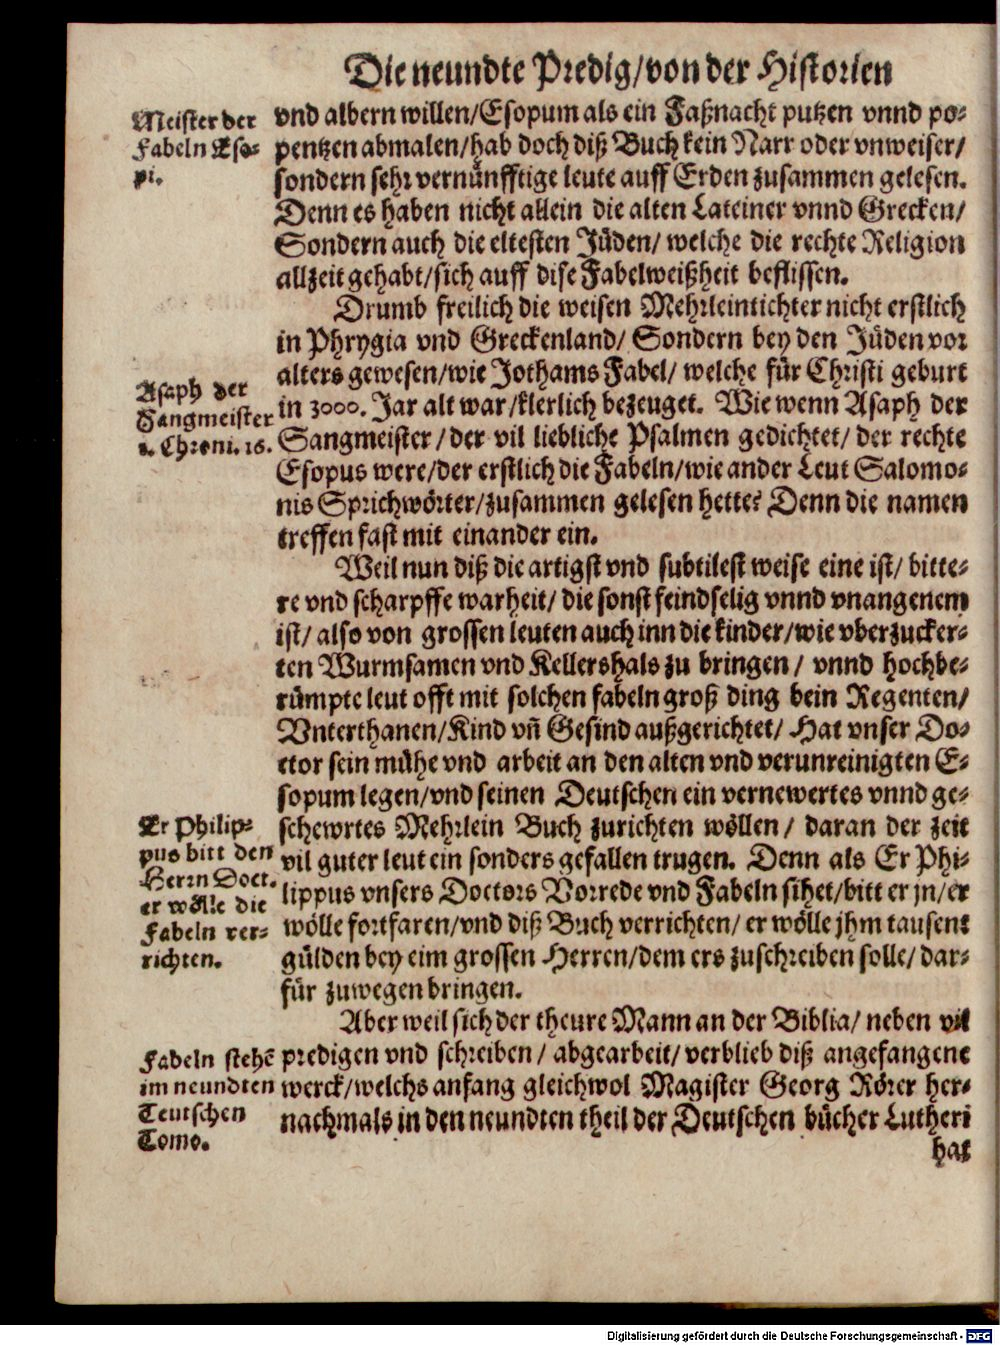 Die neundte Predig/von der Historien
Meister der
Fabeln Eso-
pi.
vnd albern willen/Esopum als ein Faßnacht putzen vnnd po-
pentzen abmalen/hab doch diß Buch kein Narr oder vnweiser/
sondern sehr vernünfftige leute auff Erden zusammen gelesen.
Denn es haben nicht allein die alten Lateiner vnnd Grecken/
Sondern auch die eltesten Jüden/ welche die rechte Religion
allzeit gehabt/sich auff dise Fabelweißheit beflissen.
Drumb freilich die weisen Mehrleintichter nicht erstlich
in Phrygia vnd Greckenland/ Sondern bey den Jüden vor
alters gewesen/wie Jothams Fabel/ welche für Christi geburt
in 3000. Jar alt war/klerlich bezeuget. Wie wenn Asaph der
Sangmeister/der vil liebliche Psalmen gedichtet/ der rechte
Esopus were/der erstlich die Fabeln/wie ander Leut Salomo-
nis Sprichwörter/zusammen gelesen hette? Denn die namen
treffen fast mit einander ein.
Asaph der
Sangmeister
1. Chroni. 16.
Weil nun diß die artigst vnd subtilest weise eine ist/ bitte-
re vnd scharpffe warheit/ die sonst feindselig vnnd vnangenem
ist/ also von grossen leuten auch inn die kinder/wie vberzucker-
ten Wurmsamen vnd Kellershals zu bringen/ vnnd hochbe-
rümpte leut offt mit solchen fabeln groß ding bein Regenten/
Vnterthanen/Kind vñ Gesind außgerichtet/ Hat vnser Do-
ctor sein mühe vnd arbeit an den alten vnd verunreinigten E-
sopum legen/vnd seinen Deutschen ein vernewertes vnnd ge-
schewrtes Mehrlein Buch zurichten wöllen/ daran der zeit
vil guter leut ein sonders gefallen trugen. Denn als Er Phi-
lippus vnsers Doctors Vorrede vnd Fabeln sihet/bitt er jn/er
wölle fortfaren/vnd diß Buch verrichten/ er wölle jhm tausent
gülden bey eim grossen Herren/dem ers zuschreiben solle/ dar-
für zuwegen bringen.
Er Philip-
pus bitt den
Herrn Doct.
er wölle die
Fabeln ver-
richten.
Aber weil sich der theure Mann an der Biblia/ neben vil
predigen vnd schreiben/ abgearbeit/ verblieb diß angefangene
werck/welchs anfang gleichwol Magister Georg Rörer her-
nachmals in den neundten theil der Deutschen bücher Lutheri
Fabeln stehē
im neundten
Teutschen
Tomo.
hat
Digitalisierung gefördert durch die Deutsche Forschungsgemeinschaft - DFG